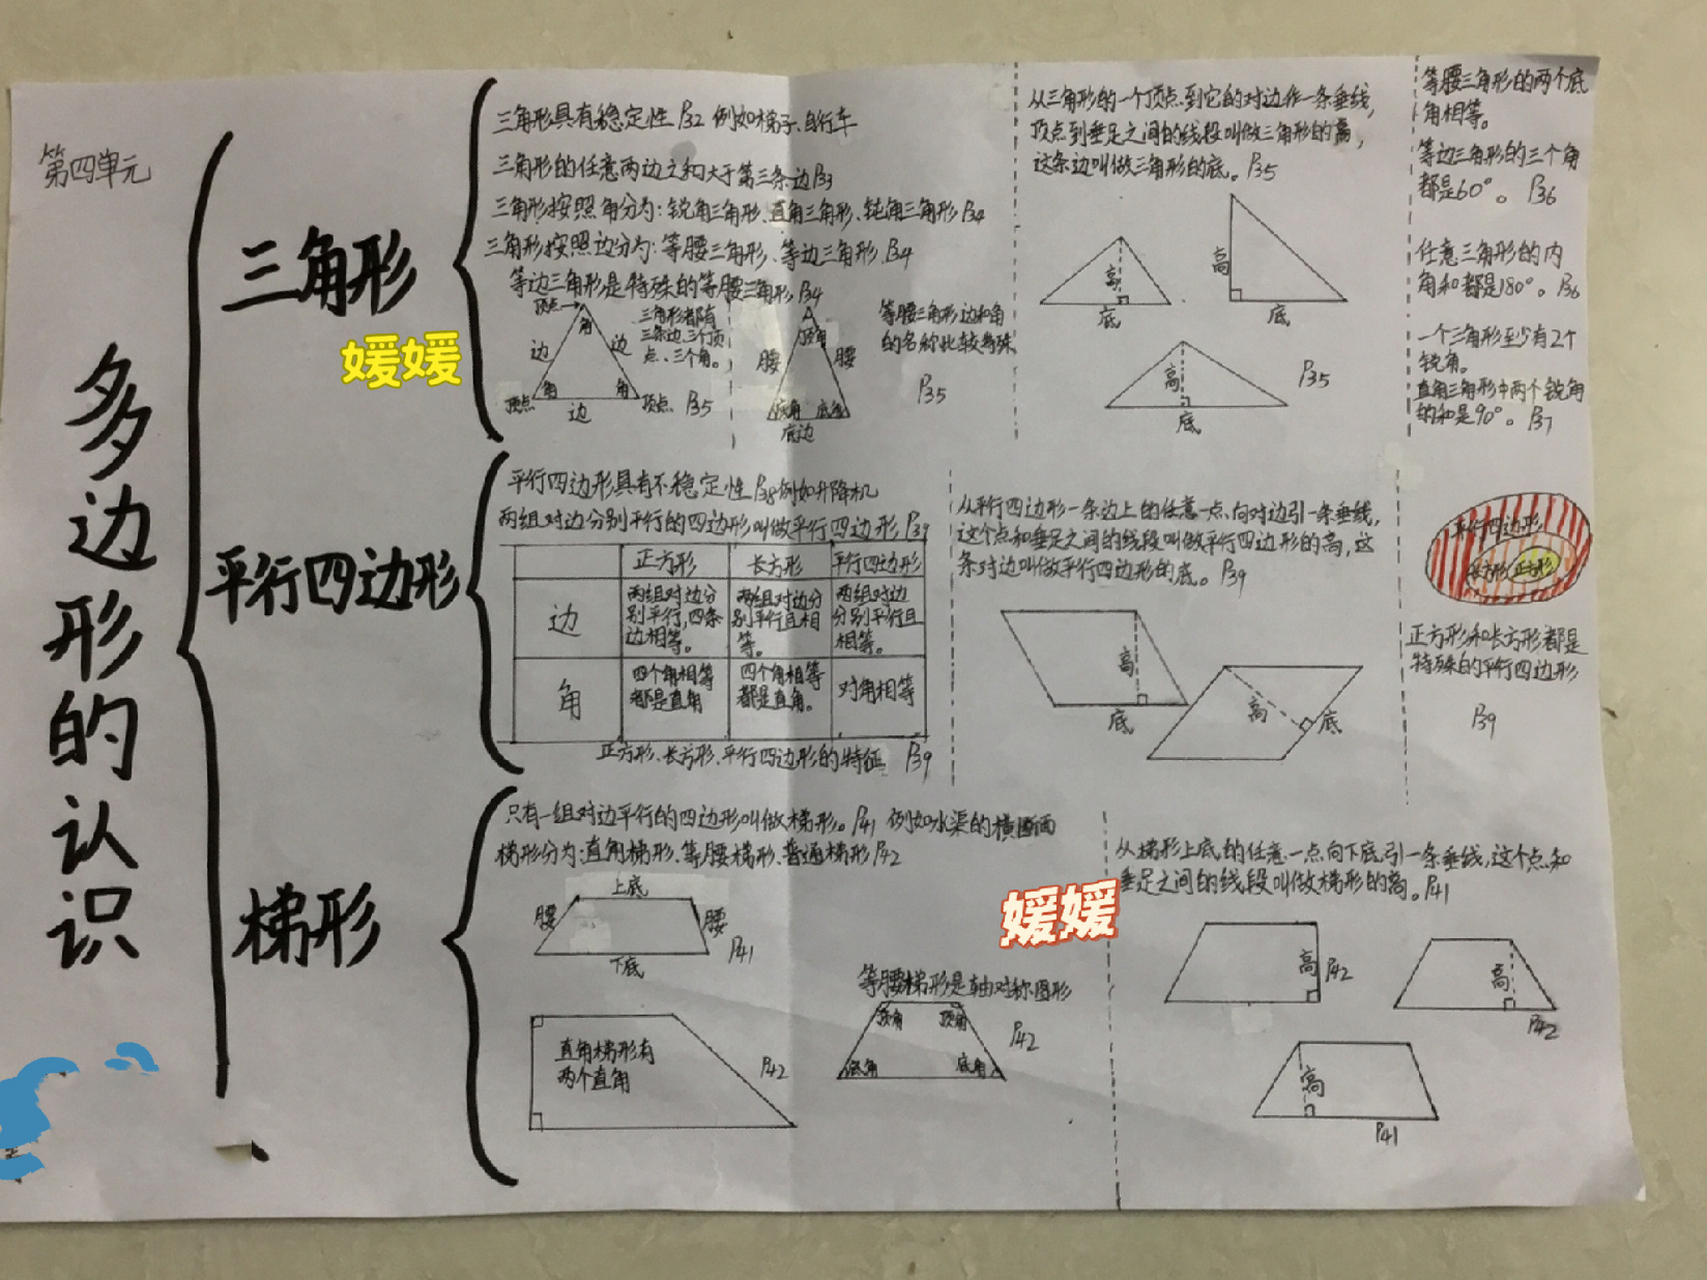 第四单元
多边形的认识
三角形
媛媛
三角形具有稳定性 P32 例如梯子、自行车
三角形的任意两边之和大于第三条边P33
三角形按照角分为:锐角三角形、直角三角形、钝角三角形 P34
三角形按照边分为:等腰三角形、等边三角形 P34
等边三角形是特殊的等腰三角形 P34
顶点
角
边
边
角
角
顶点
边
顶点
三角形都有
三条边、三个顶
点、三个角。
P35
顶角
腰
腰
底角
底角
底边
等腰三角形边和角
的名称比较特殊
P35
从三角形的一个顶点到它的对边作一条垂线,
顶点到垂足之间的线段叫做三角形的高,
这条边叫做三角形的底。P35
高
底
高
底
高
底
P35
等腰三角形的两个底
角相等。
等边三角形的三个角
都是60°。P36
任意三角形的内
角和都是180°。P36
一个三角形至少有2个
锐角。
直角三角形中两个锐角
的和是90°。P37
平行四边形
平行四边形具有不稳定性 P38 例如升降机
两组对边分别平行的四边形叫做平行四边形 P39
正方形 长方形 平行四边形
边
两组对边分
别平行,四条
边相等。
两组对边分
别平行且相
等。
两组对边
分别平行且
相等。
角
四个角相等
都是直角
四个角相等
都是直角。
对角相等
正方形、长方形、平行四边形的特征 P39
从平行四边形一条边上的任意一点向对边引一条垂线,
这个点和垂足之间的线段叫做平行四边形的高,这
条对边叫做平行四边形的底。P39
高
底
高
底
平行四边形
长方形
正方形
正方形和长方形都是
特殊的平行四边形
P39
梯形
只有一组对边平行的四边形叫做梯形。P41 例如水渠的横断面
梯形分为:直角梯形、等腰梯形、普通梯形 P42
上底
腰
腰
下底
P41
直角梯形有
两个直角
P42
等腰梯形是轴对称图形
顶角
顶角
底角
底角
P42
媛媛
从梯形上底的任意一点向下底引一条垂线,这个点和
垂足之间的线段叫做梯形的高。P41
高
P42
高
P42
高
P41